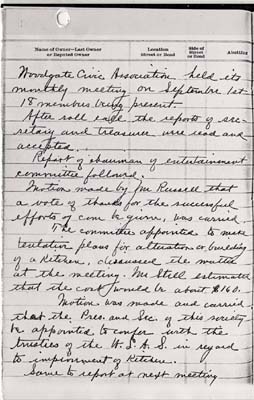 Name of Owner—Last Owner
or Reputed Owner
Location
Street or Road
Side of
Street
or Road
Abutting
Woodgate Civic Association held its
monthly meeting on September 1st
18 members being present.
After roll call the reports of sec-
retary and treasurer were read and
accepted.
Report of chairman of entertainment
committee followed.
Motion made by Mr Russell that
a vote of thanks for the successful
efforts of com. be given, was carried.
The committee appointed to make
tentative plans for alteration or building
of a kitchen, discussed the matter
at the meeting. Mr Still estimated
that the cost would be about $160.
Motion was made and carried
that the Pres. and Sec. of this society
be appointed to confer with the
trustees of the W.S.A.S. in regard
to improvement of kitchen.
Same to report at next meeting